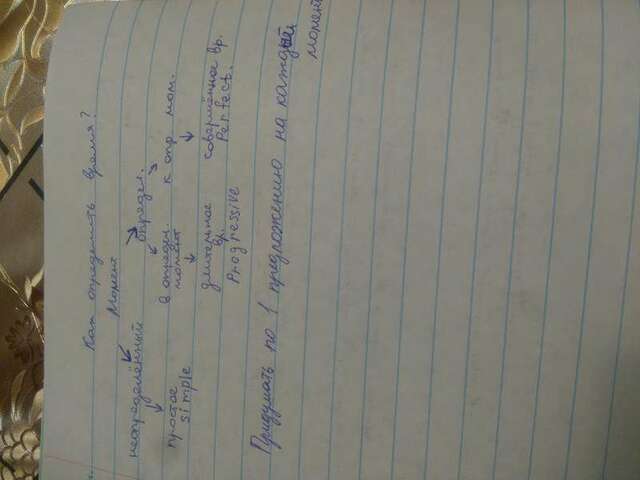 Как определить время?
Момент
неопределённый определ.
простое в определ. к опр мом.
simple момент
длительное совершённое вр.
вр. Perfect.
Progressive
Придумать по 1 предложению на каждый
момент